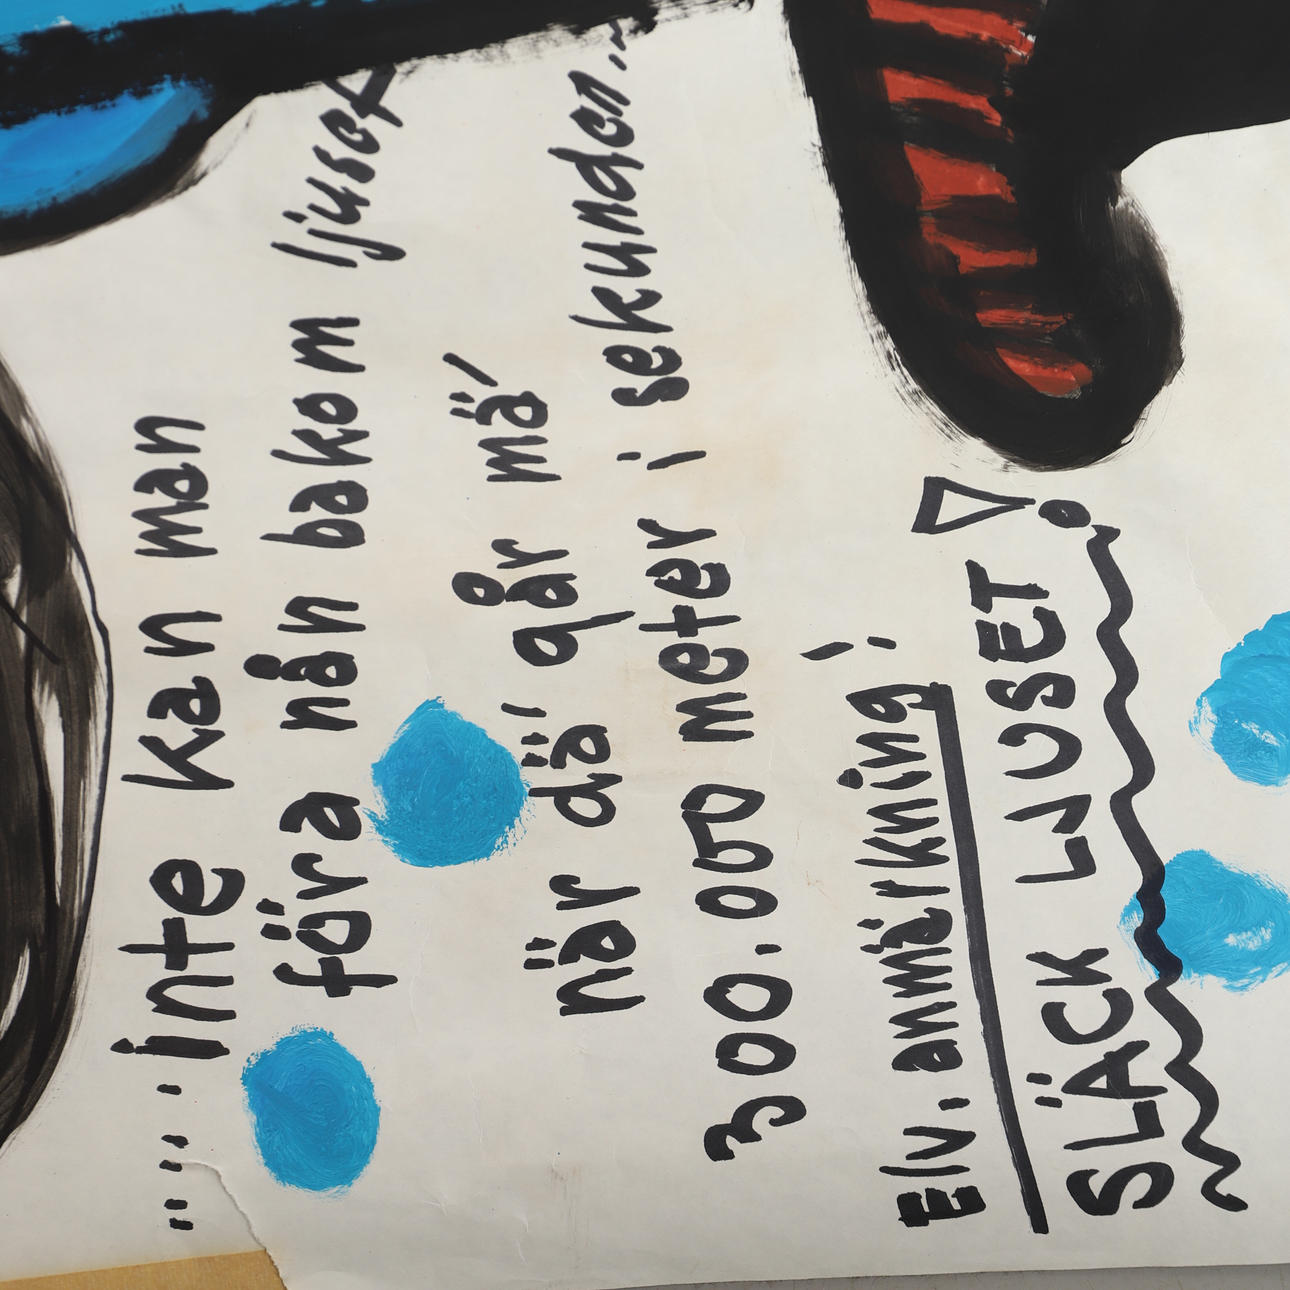 ".... inte kan man
föra nån bakom ljuset
när dä' går mä'
300.000 meter i sekunden..."
Elv. anmärkning:
SLÄCK LJUSET!